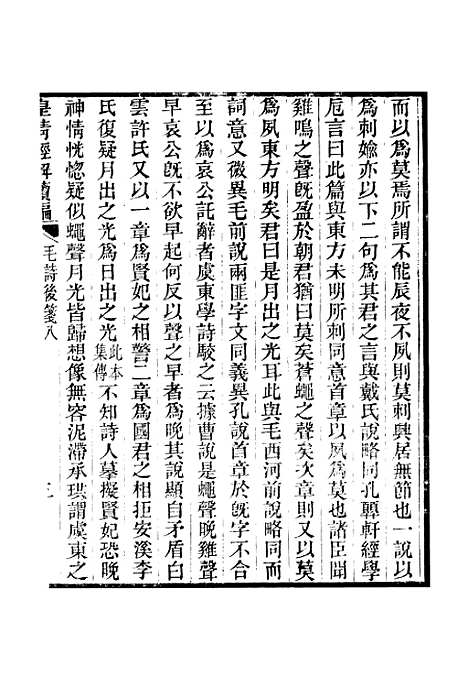 而以爲莫焉所謂不能辰夜不夙則莫刺興居無節也一說以
爲刺嬐亦以下二句爲其君之言與戴氏說略同孔㢲軒經學
卮言曰此篇與東方未明所刺同意首章以夙爲莫也諸臣聞
雞鳴之聲旣盈於朝君猶曰莫矣蒼蠅之聲矣次章則又以莫
爲夙東方明矣君曰是月出之光耳此與毛西河前說略同而
詞意又微異毛前說兩匪字文同義異孔說首章於旣字不合
至以爲哀公託辭者虞東學詩駮之云據曹說是蠅聲晚雞聲
早哀公旣不欲早起何反以聲之早者爲晚其說顯自矛盾白
雲許氏又以一章爲賢妃之相警二章爲國君之相拒安溪李
氏復疑月出之光爲日出之光此本集傳不知詩人摹擬賢妃恐晚
神情恍惚疑似蠅聲月光皆歸想像無容泥滯承珙謂虞東之
皇淸經解續編
毛詩後箋八